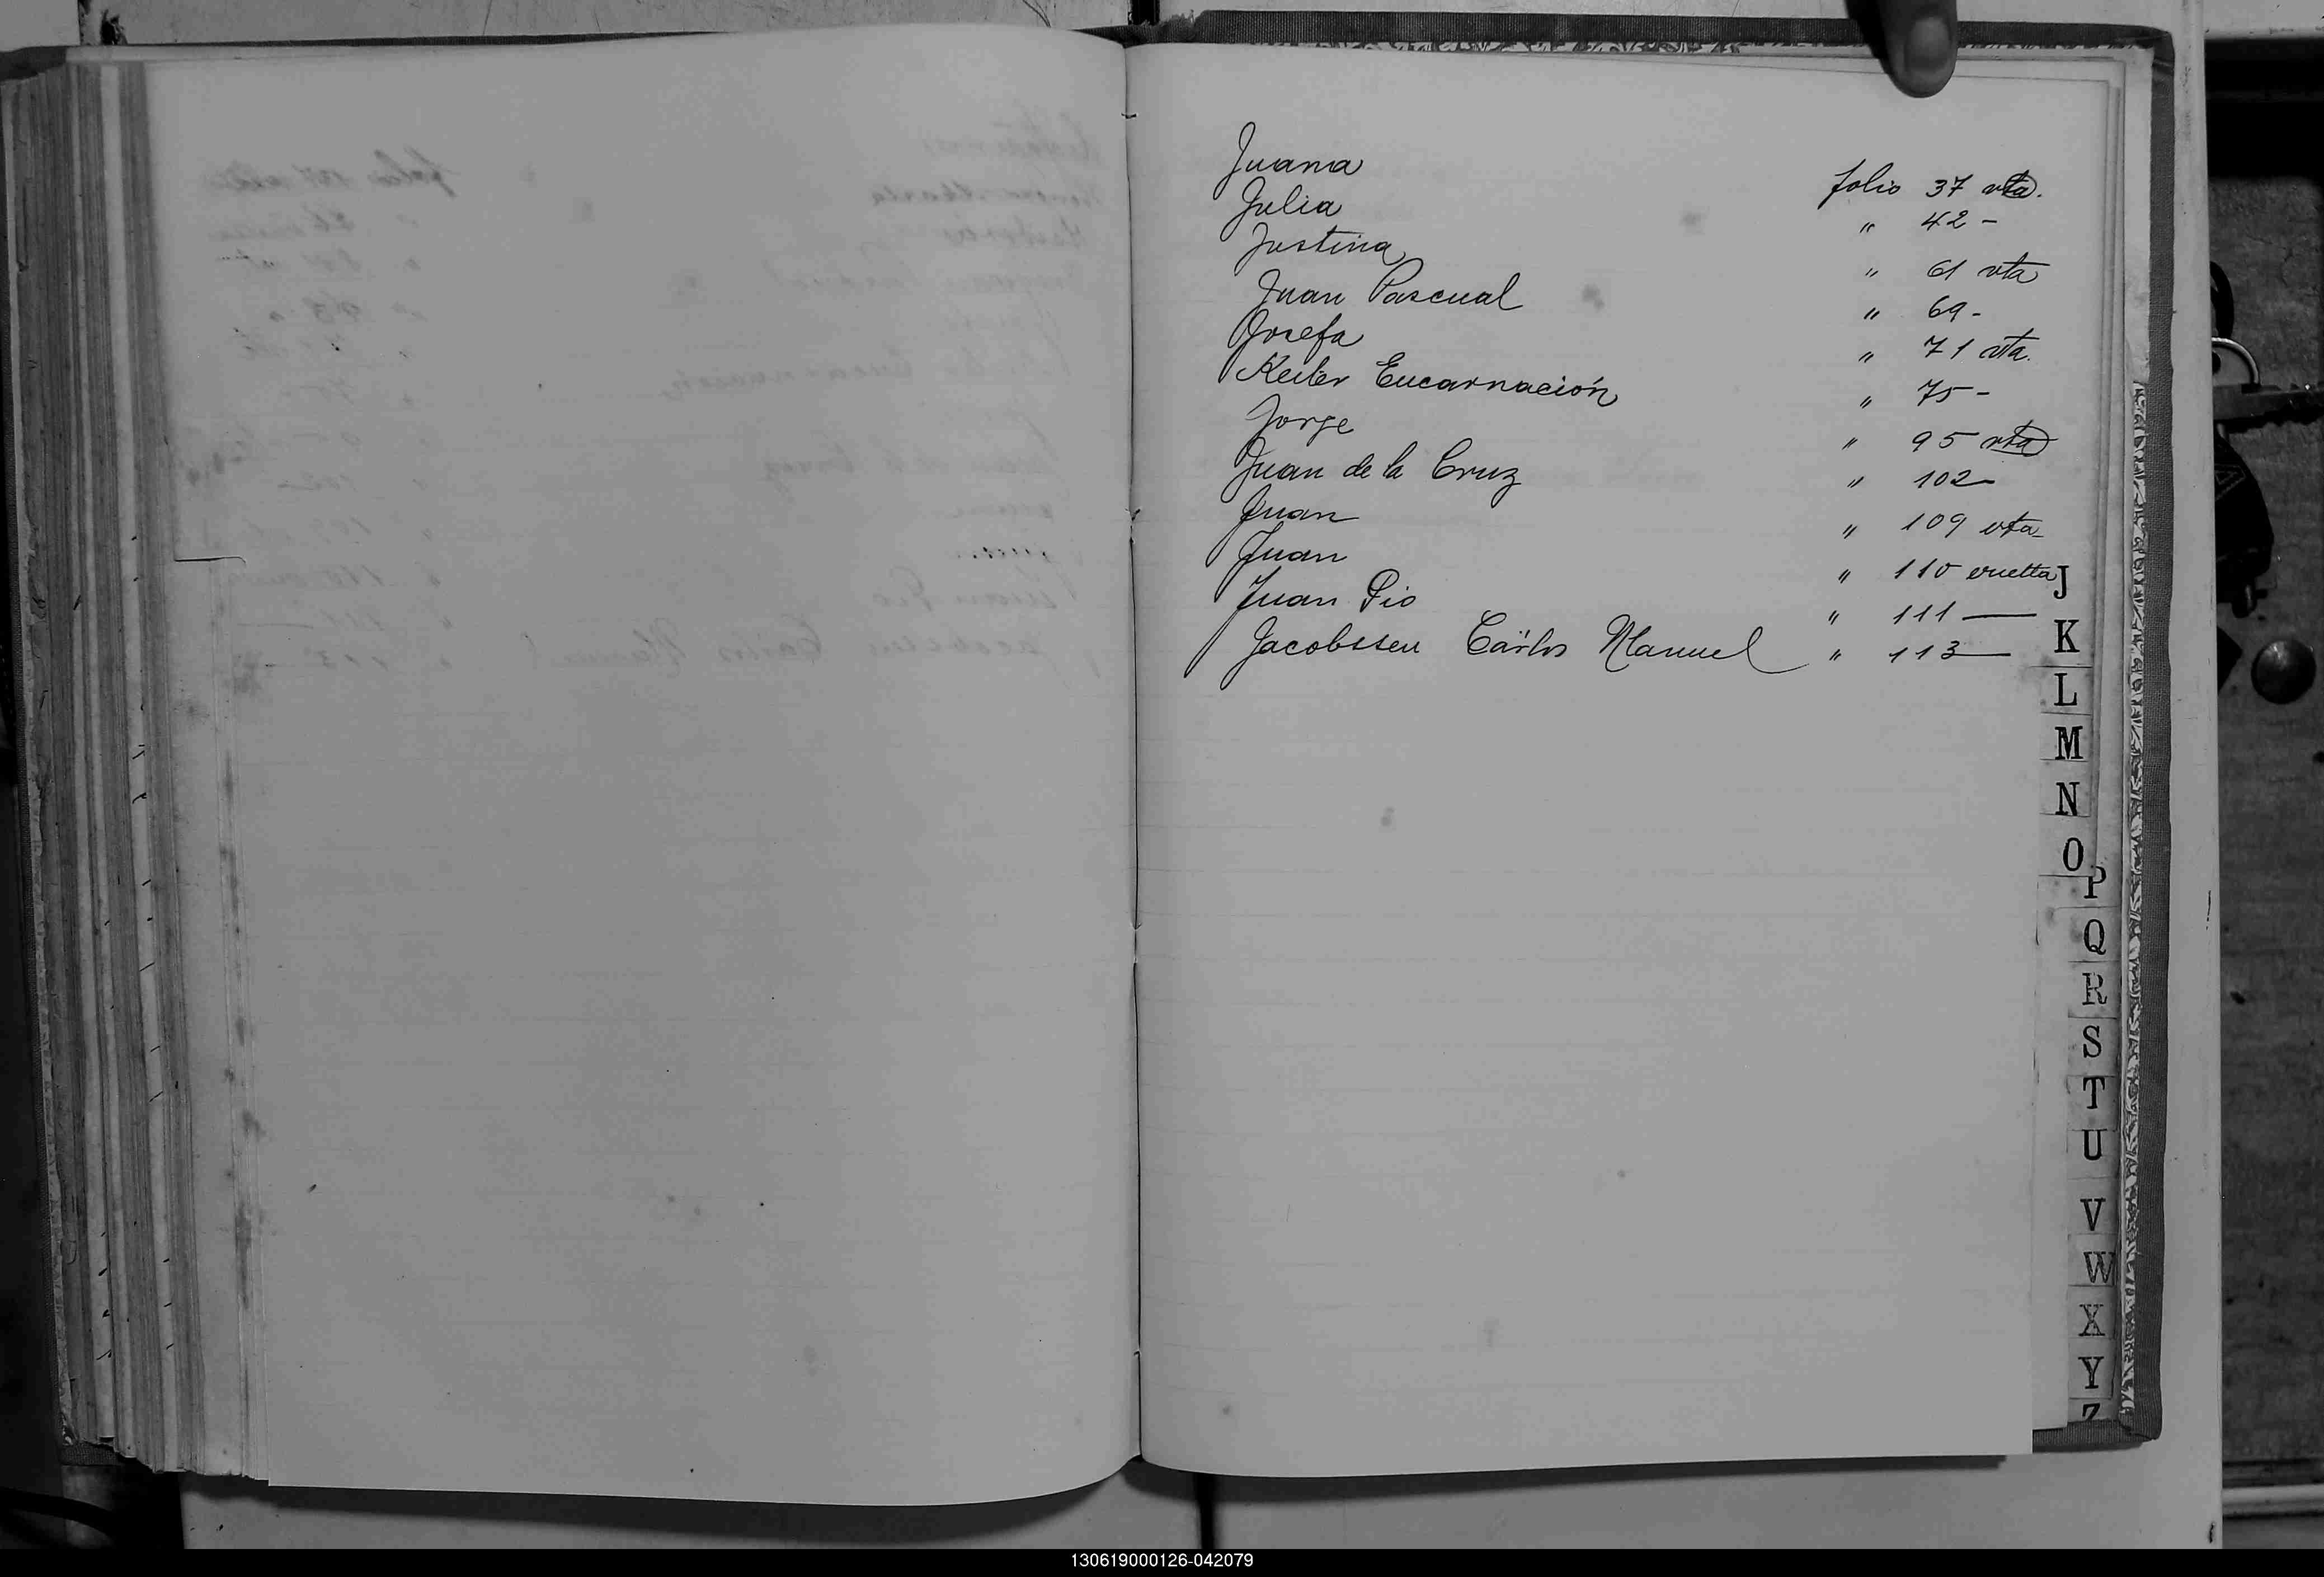 Juana folio 37 vta.
Julia " 42 -
Justina " 61 vta
Juan Pascual " 69 -
Josefa " 71 vta.
Keiler Encarnación " 75 -
Jorge " 95 vta
Juan de la Cruz " 102 -
Juan " 109 vta
Juan " 110 vuelta
Juan Pio " 111 —
Jacobssen Carlos Manuel " 113 —
J
K
L
M
N
O
P
Q
R
S
T
U
V
W
X
Y
Z
130619000126-042079